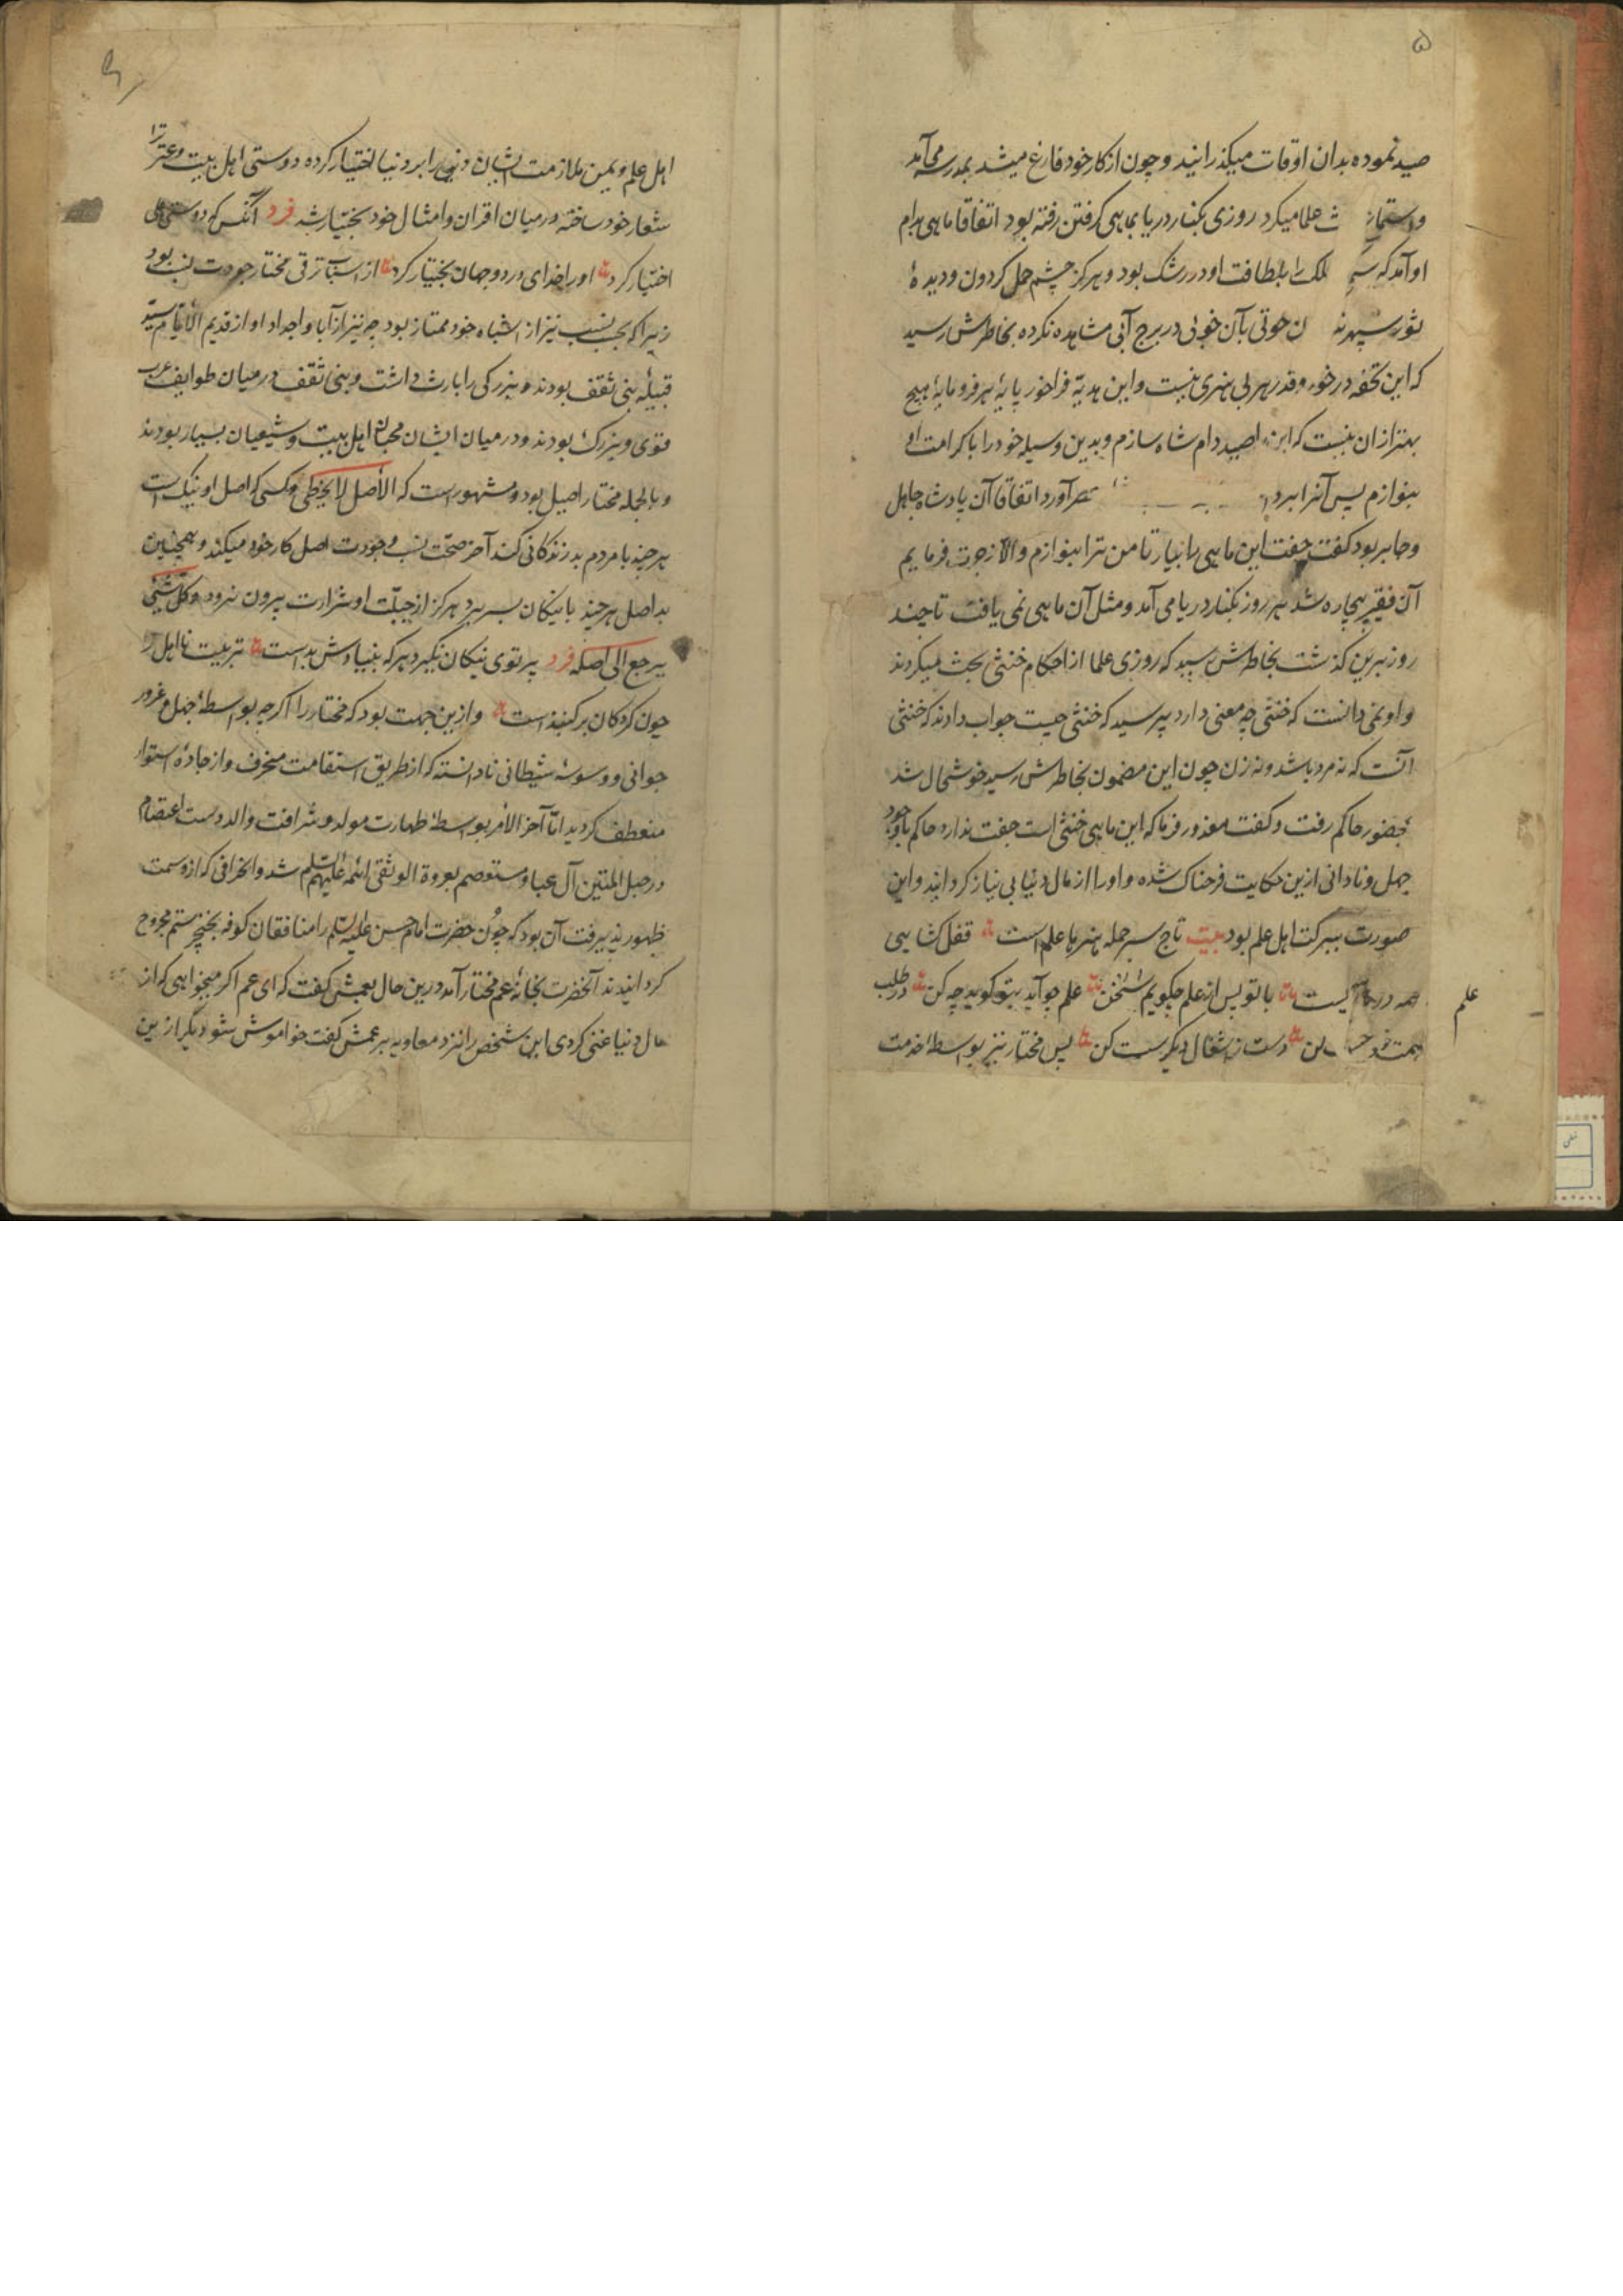 ۵
صید نموده بدان اوقات میکذرانید و چون از کار خود فارغ میشد بمدرسه می‌آمد
و استماع علما میکرد روزی بکنار دریا بماهی کرفتن رفته بود اتفاقا ماهی بدام
او آمد که فلک را بلطافت او در رشک بود و هرکز چشم حمل کردون و دیدهٔ
ثور سپهر حوتی بآن خوبی در برج آبی مشاهده نکرده بخاطرش رسید
که این تحفه در خور و قدر هر بی هنری نیست و این هدیهٔ فراخور پایهٔ هر فرومایهٔ هیچ
بهتر از ان نیست که این را صید دام شاه سازم و بدین وسیله خود را با کرامت او
بنوازم پس آنرا آورد اتفاقا آن پادشاه جاهل
و جابر بود کفت جفت این ماهی را بیار تا من ترا بنوازم والا زجرت فرمایم
آن فقیر بیچاره شد هر روز بکنار دریا می آمد و مثل آن ماهی نمی یافت تا چند
روز برین کذشت بخاطرش رسید که روزی علما از احکام خنثی بحث میکردند
و او نمی دانست که خنثی چه معنی دارد پرسید که خنثی چیست جواب دادند که خنثی
آنست که نه مرد باشد و نه زن چون این مضمون بخاطرش رسید خوشحال شد
بحضور حاکم رفت و کفت معذور فرما که این ماهی خنثی است جفت ندارد حاکم با وجود
جهل و نادانی ازین حکایت فرحناک شده و او را از مال دنیا بی نیاز کردانید و این
صورت ببرکت اهل علم بود بیت تاج سر جمله هنرها علم است قفل کشایی
همه درها علم یست با تو پس از علم چکویم سخن علم چو آید بتو کوید چه کن در طلب
همت خود کن دست ز اشغال دیکر سست کن پس مختار نیز بواسطهٔ خدمت
اهل علم و یمن ملازمت ایشان دین را بر دنیا اختیار کرده دوستی اهل بیت و عترت را
شعار خود ساخته در میان اقران و امثال خود بختیار شد فرد آنکس که دوستی علی
اختیار کرد او را خدای در دو جهان بختیار کرد از اسباب ترقی مختار جودت نسب بود
زیرا که بحسب نسب نیز از اشباه خود ممتاز بود چه نیز از آبا و اجداد او از قدیم الایام سید
قبیلهٔ بنی ثقف بودند و بزرکی را بارث داشت و بنی ثقف در میان طوایف عرب
قوی و بزرک بودند و در میان ایشان محبان اهل بیت و شیعیان بسیار بودند
و بالجمله مختار اصیل بود و مشهور است که الأصل لا یخطی و کسی که اصل او نیک است
هر چند با مردم بد زندکانی کند آخر صحت نسب و جودت اصل کار خود میکند و همچنین
بد اصل هر چند با نیکان بسر برد هرکز از جبلّت او شرارت بیرون نرود و کل شئ
یرجع الی اصله فرد پرتوی نیکان نکیرد هر که بنیادش بد است تربیت نا اهل را
چون کردکان بر کنبذ است و ازین جهت بود که مختار را اکر چه بواسطهٔ جهل و غرور
جوانی و وسوسهٔ شیطانی نادانسته که از طریق استقامت منحرف و از جادهٔ استوار
منعطف کردید امّا آخر الأمر بواسطهٔ طهارت مولد و شرافت والد دست اعتصام
در حبل المتین آل عبا و مستعصم بعروة الوثقی ائمه علیهم السلم شد و انحرافی که ازو سمت
ظهور پذیرفت آن بود که چون حضرت امام حسن علیه السلم را منافقان کوفه بخنجر ستم مجروح
کردانیدند آنحضرت بخانهٔ عم مختار آمد درین حال بعمش کفت که ای عم اکر میخواهی که از
مال دنیا غنی کردی این شخص را نزد معاویه بر عمش کفت خواموش شو دیکر ازین
علم